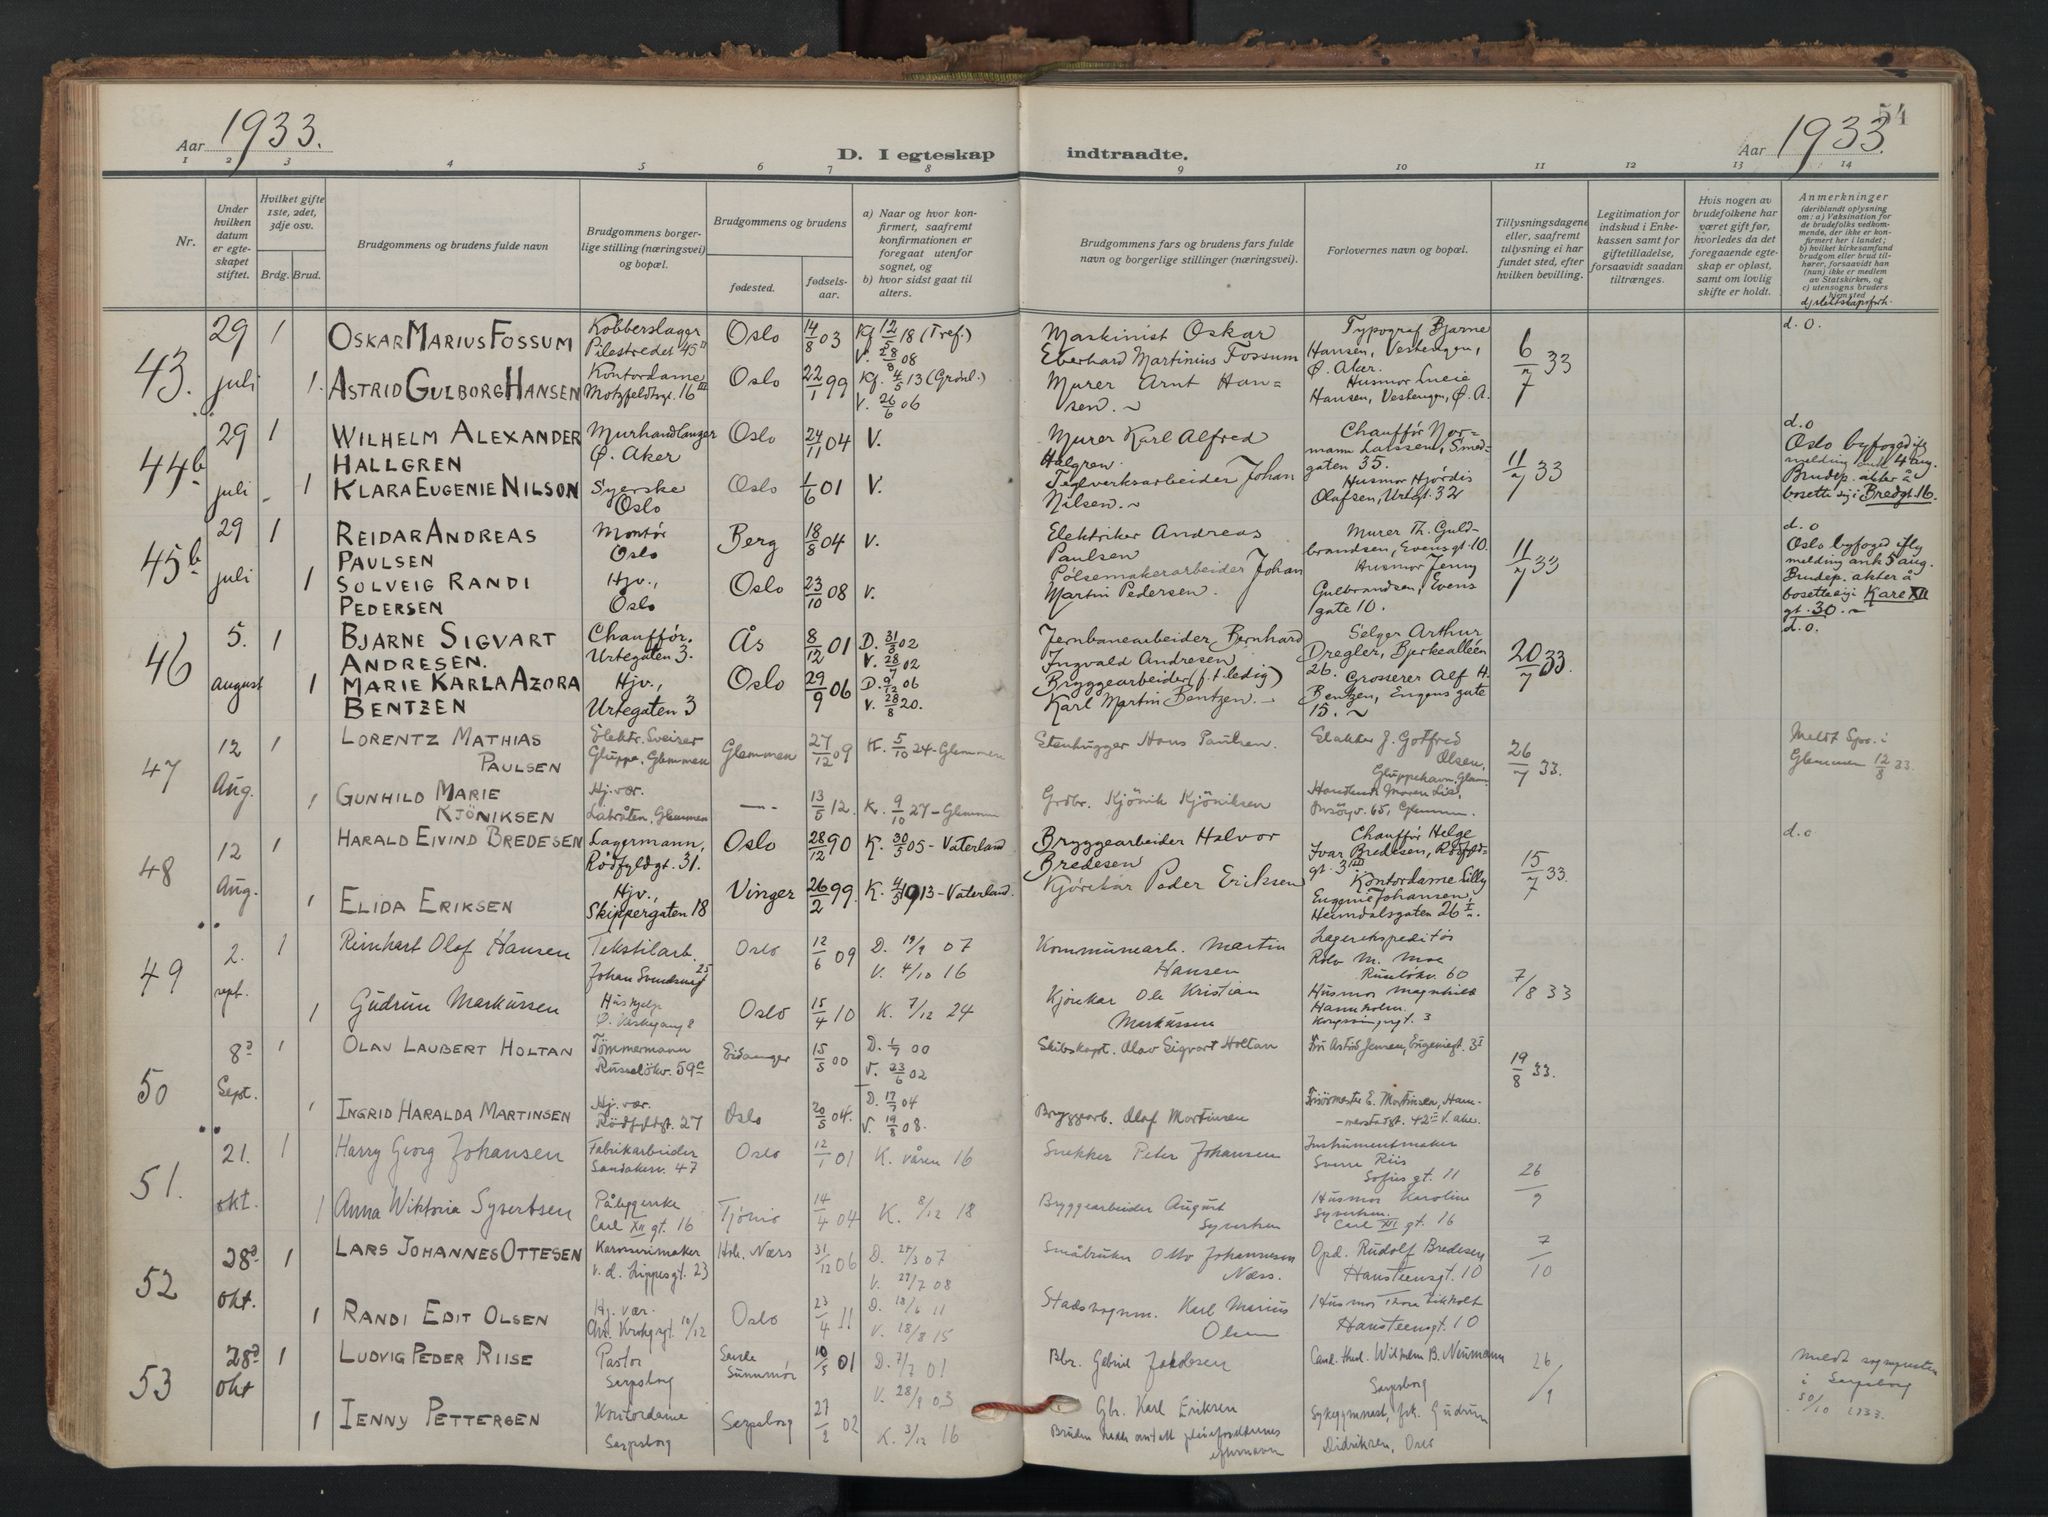 Aar 1933.
D. I egteskap indtraadte.
Aar 1933.
54
1 2 3 4 5 6 7 8 9 10 11 12 13 14
Nr.
Under hvilken datum er egteskapet stiftet.
Hvilket gifte 1ste, 2det, 3dje osv.
Brdg. Brud.
Brudgommens og brudens fulde navn
Brudgommens borgerlige stilling (næringsvei) og bopæl.
Brudgommens og brudens
fødested.
fødselsaar.
a) Naar og hvor konfirmert, saafremt konfirmationen er foregaat utenfor sognet, og
b) hvor sidst gaat til alters.
Brudgommens fars og brudens fars fulde navn og borgerlige stillinger (næringsvei).
Forlovernes navn og bopæl.
Tillysningsdagene eller, saafremt tillysning ei har fundet sted, efter hvilken bevilling.
Legitimation for indskud i Enkekassen samt for giftetilladelse, forsaavidt saadan tiltrænges.
Hvis nogen av brudefolkene har været gift før, hvorledes da det foregaaende egteskap er opløst, samt om lovlig skifte er holdt.
Anmerkninger
(deriblandt oplysning om: a) Vaksination for de brudefolks vedkommende, der ikke er konfirmert her i landet; b) hvilket kirkesamfund brudgom eller brud tilhører, forsaavidt han (hun) ikke er medlem av Statskirken, og c) utensogns bruders hjemsted
43. 29 juli 1 OSKAR MARIUS FOSSUM Kobberslager Pilestredet 45 II Oslo 14/8 03 Kf. 12/5 18 (Tref.) V. 28/8 08
Maskinist Oskar Eberhard Martinius Fossum
Typograf Bjarne Hansen, Vestengen, Ø. Aker.
6/7 33
d. o.
1. ASTRID GULBORG HANSEN Kontordame Motzfeldtsgt. 16 III Oslo 22/1 99 Kf. 4/5 13 (Grønl.) V. 26/6 06
Murer Arnt Hansen.
Husmor Lucie Hansen, Vestengen, Ø. A.
44b 29 juli 1 WILHELM ALEXANDER HALLGREN Murhandlanger Ø. Aker Oslo 24/11 04 V.
Murer Karl Alfred Halgren.
Chauffør Normann Larssen, Smedgaten 35.
11/7 33
d. o
Oslo byfoged ifl. melding ank 4 aug. Brudep. akter å bosette sig i Bredgt. 16.
1 KLARA EUGENIE NILSON Syerske Oslo Oslo 1/6 01 V.
Teglverksarbeider Johan Nilsen.
Husmor Hjørdis Olafsen, Urtegt. 32
45b 29 juli 1 REIDAR ANDREAS PAULSEN Montør Oslo Berg 18/8 04 V.
Elektriker Andreas Paulsen
Murer Th. Guldbrandsen, Evensgt. 10.
11/7 33
d. o
Oslo byfoged iflg melding ank 5 aug. Brudep. akter å bosette sig i Karl XII gt. 30.
1 SOLVEIG RANDI PEDERSEN Hjv., Oslo Oslo 23/10 08 V.
Pølsemakerarbeider Johan Martin Pedersen.
Husmor Jenny Gulbrandsen, Evens gate 10.
46 5. august 1 BJARNE SIGVART ANDRESEN. Chauffør. Urtegaten 3. Ås 8/12 01 D. 31/3 02 V. 28/9 02
Jernbanearbeider Bernhard Ingvald Andresen
Selger Arthur Dregler, Bjerkealléen 26.
20/7 33.
d. o.
1 MARIE KARLA AZORA BENTZEN Hjv., Urtegaten 3 Oslo 29/9 06 D. 9/12 06 V. 28/8 20.
Bryggearbeider (f. t. ledig) Karl Martin Bentzen.
Grosserer Alf H. Bentzen, Eugens gate 15.
47 12 Aug. 1 LORENTZ MATHIAS PAULSEN Elektr. Sveiser Gluppe, Glemmen Glemmen 27/12 09 K. 5/10 24 - Glemmen
Stenhugger Hans Paulsen.
J. Gotfred Olsen, Gluppehavn, Glem.
26/7 33.
Meldt Spr. i Glemmen 12/8 33.
1 GUNHILD MARIE KJÖNIKSEN Hj. vær. Glemmen 13/5 12. K. 9/10 27 - Glemmen
Grdbr. Kjönik Kjöniksen
65, Glemmen.
48 12 Aug. 1 HARALD EIVIND BREDESEN Lagermann, Rödfyldgt. 31. Oslo 28/12 90 K. 30/5 05 - Vaterland
Bryggearbeider Halvor Bredesen
Chauffør Helge Ivar Bredesen, Rödfyldgt. 31 III
15/7 33.
d. o
1 ELIDA ERIKSEN Hjv., Skippergaten 18 Vinger 26/2 99. K. 4/5 1913 - Vaterland.
Kjørekar Peder Eriksen
Kontordame Lilly Eugenie Johansen, Heimdalsgaten 26 I.
49 2. sept. 1 Reinhart Olaf Hansen Tekstilarb. Johan Svendsvei 25 Oslo 12/6 09 D. 19/9 07 V. 4/10 16
Kommunearb. Martin Hansen
Lagerekspeditör Rolv M. Moe Ruselökv. 60
7/8 33
1 Gudrun Markussen Hushjelp Ø. Vaskegang 8 Oslo 15/4 10 K. 7/12 24
Kjörekar Ole Kristian Markussen
Husmor Magnhild Hannholm. Kongssingergt. 3
50 8d Sept. 1 OLAV LAUBERT HOLTAN Tömmermann Russelökv. 59c Eidanger 15/5 00 D. 1/7 00 V. 23/6 02
Skibskapt. Olav Sigvart Holtan
Fru Astrid Jensen, Eugeniegt. 3 I
19/8 33.
1 INGRID HARALDA MARTINSEN Hj. vær. Rödfyldgt. 27 Oslo 20/5 04. D. 17/7 04 V. 19/8 08.
Bryggearb. Olaf Martinsen
Frisörmester E. Martinsen, Hammerstadgt. 42 II V. aker.
51. 21. okt. 1 Harry Georg Johansen Fabrikarbeider Sandakerv. 47 Oslo 12/1 01 K. våren 16
Snekker Peter Johansen
Instrumentmaker Sverre Riis Sofies gt. 11
26/9
1 Anna Wiktoria Syvertsen Påleggerske Carl XII gt. 16 Tjömö 14/4 04 K. 8/12 18
Bryggearbeider August Syvertsen
Husmor Karoline Syvertsen. Carl XII gt. 16
52 28d okt. 1 LARS JOHANNES OTTESEN Karosserimaker v. d. Lippesgt. 23 Hol. Næs 31/12 06 D. 24/3 07 V. 27/7 08
Småbruker Otto Johannesen Næss.
Opd. Rudolf Bredesen Hansteensgt. 10
7/10
1 RANDI EDIT OLSEN Hj. vær. Chr. Kroghsgt. 10/12 Oslo 23/4 11 D. 18/6 11 V. 18/8 15
Stadsvognm. Karl Marius Olsen
Husmor Thora Eikholt Hansteensgt. 10
53 28d okt 1 LUDVIG PEDER RIISE Pastor Sarpsborg Sande Sunnmör 10/5 01 D. 7/7 01 V. 28/9 03
Bbr. Gabriel Jakobsen
Cand. theol. Wilhelm B. Neumann Sarpsborg
26/9
Meldt sognepresten i Sarpsborg 30/10 1933.
1 IENNY PETTERSEN Kontordame Sarpsborg Sarpsborg 27/2 02 K. 3/12 16
Gbr. Karl Eriksen
Bruden hadde antatt pleieforeldrenes efternavn
Sykegymnast, frk. Gudrun Didriksen, Oslo